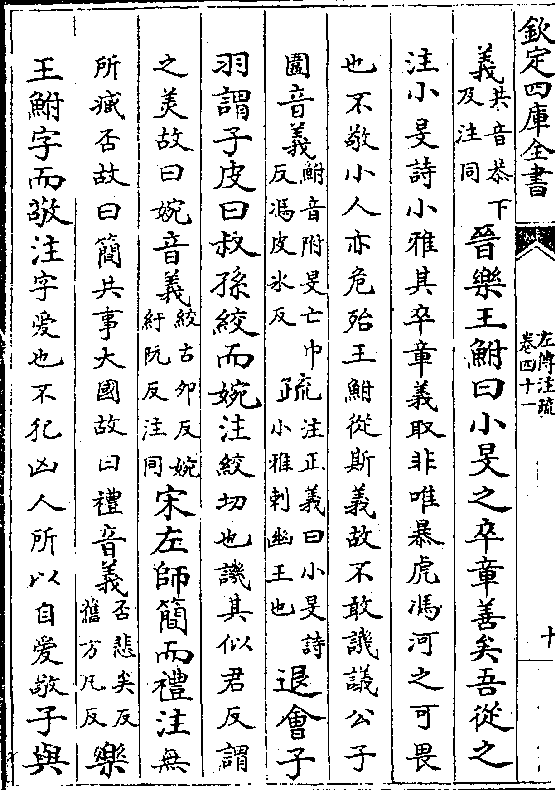 欽定四庫全書
左傳注疏
卷四十一
十
義共音恭下及注同晉樂王鮒曰小旻之卒章善矣吾從之
注小旻詩小雅其卒章義取非唯暴虎馮河之可畏
也不敬小人亦危殆王鮒從斯義故不敢譏議公子
圍音義鮒音附旻亡巾反馮皮氷反疏注正義曰小旻詩小雅刺幽王也退會子
羽謂子皮曰叔孫絞而婉注絞切也譏其似君反謂
之美故曰婉音義絞古卯反婉紆阮反注同宋左師簡而禮注無
所臧否故曰簡共事大國故曰禮音義否悲矣反舊方九反樂
王鮒字而敬注字愛也不犯凶人所以自愛敬子與